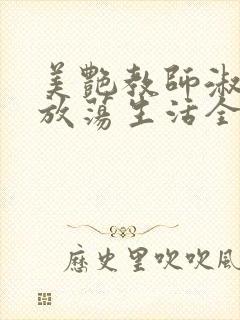 美艷教師淑
放蕩生活全
歷史里吹吹風